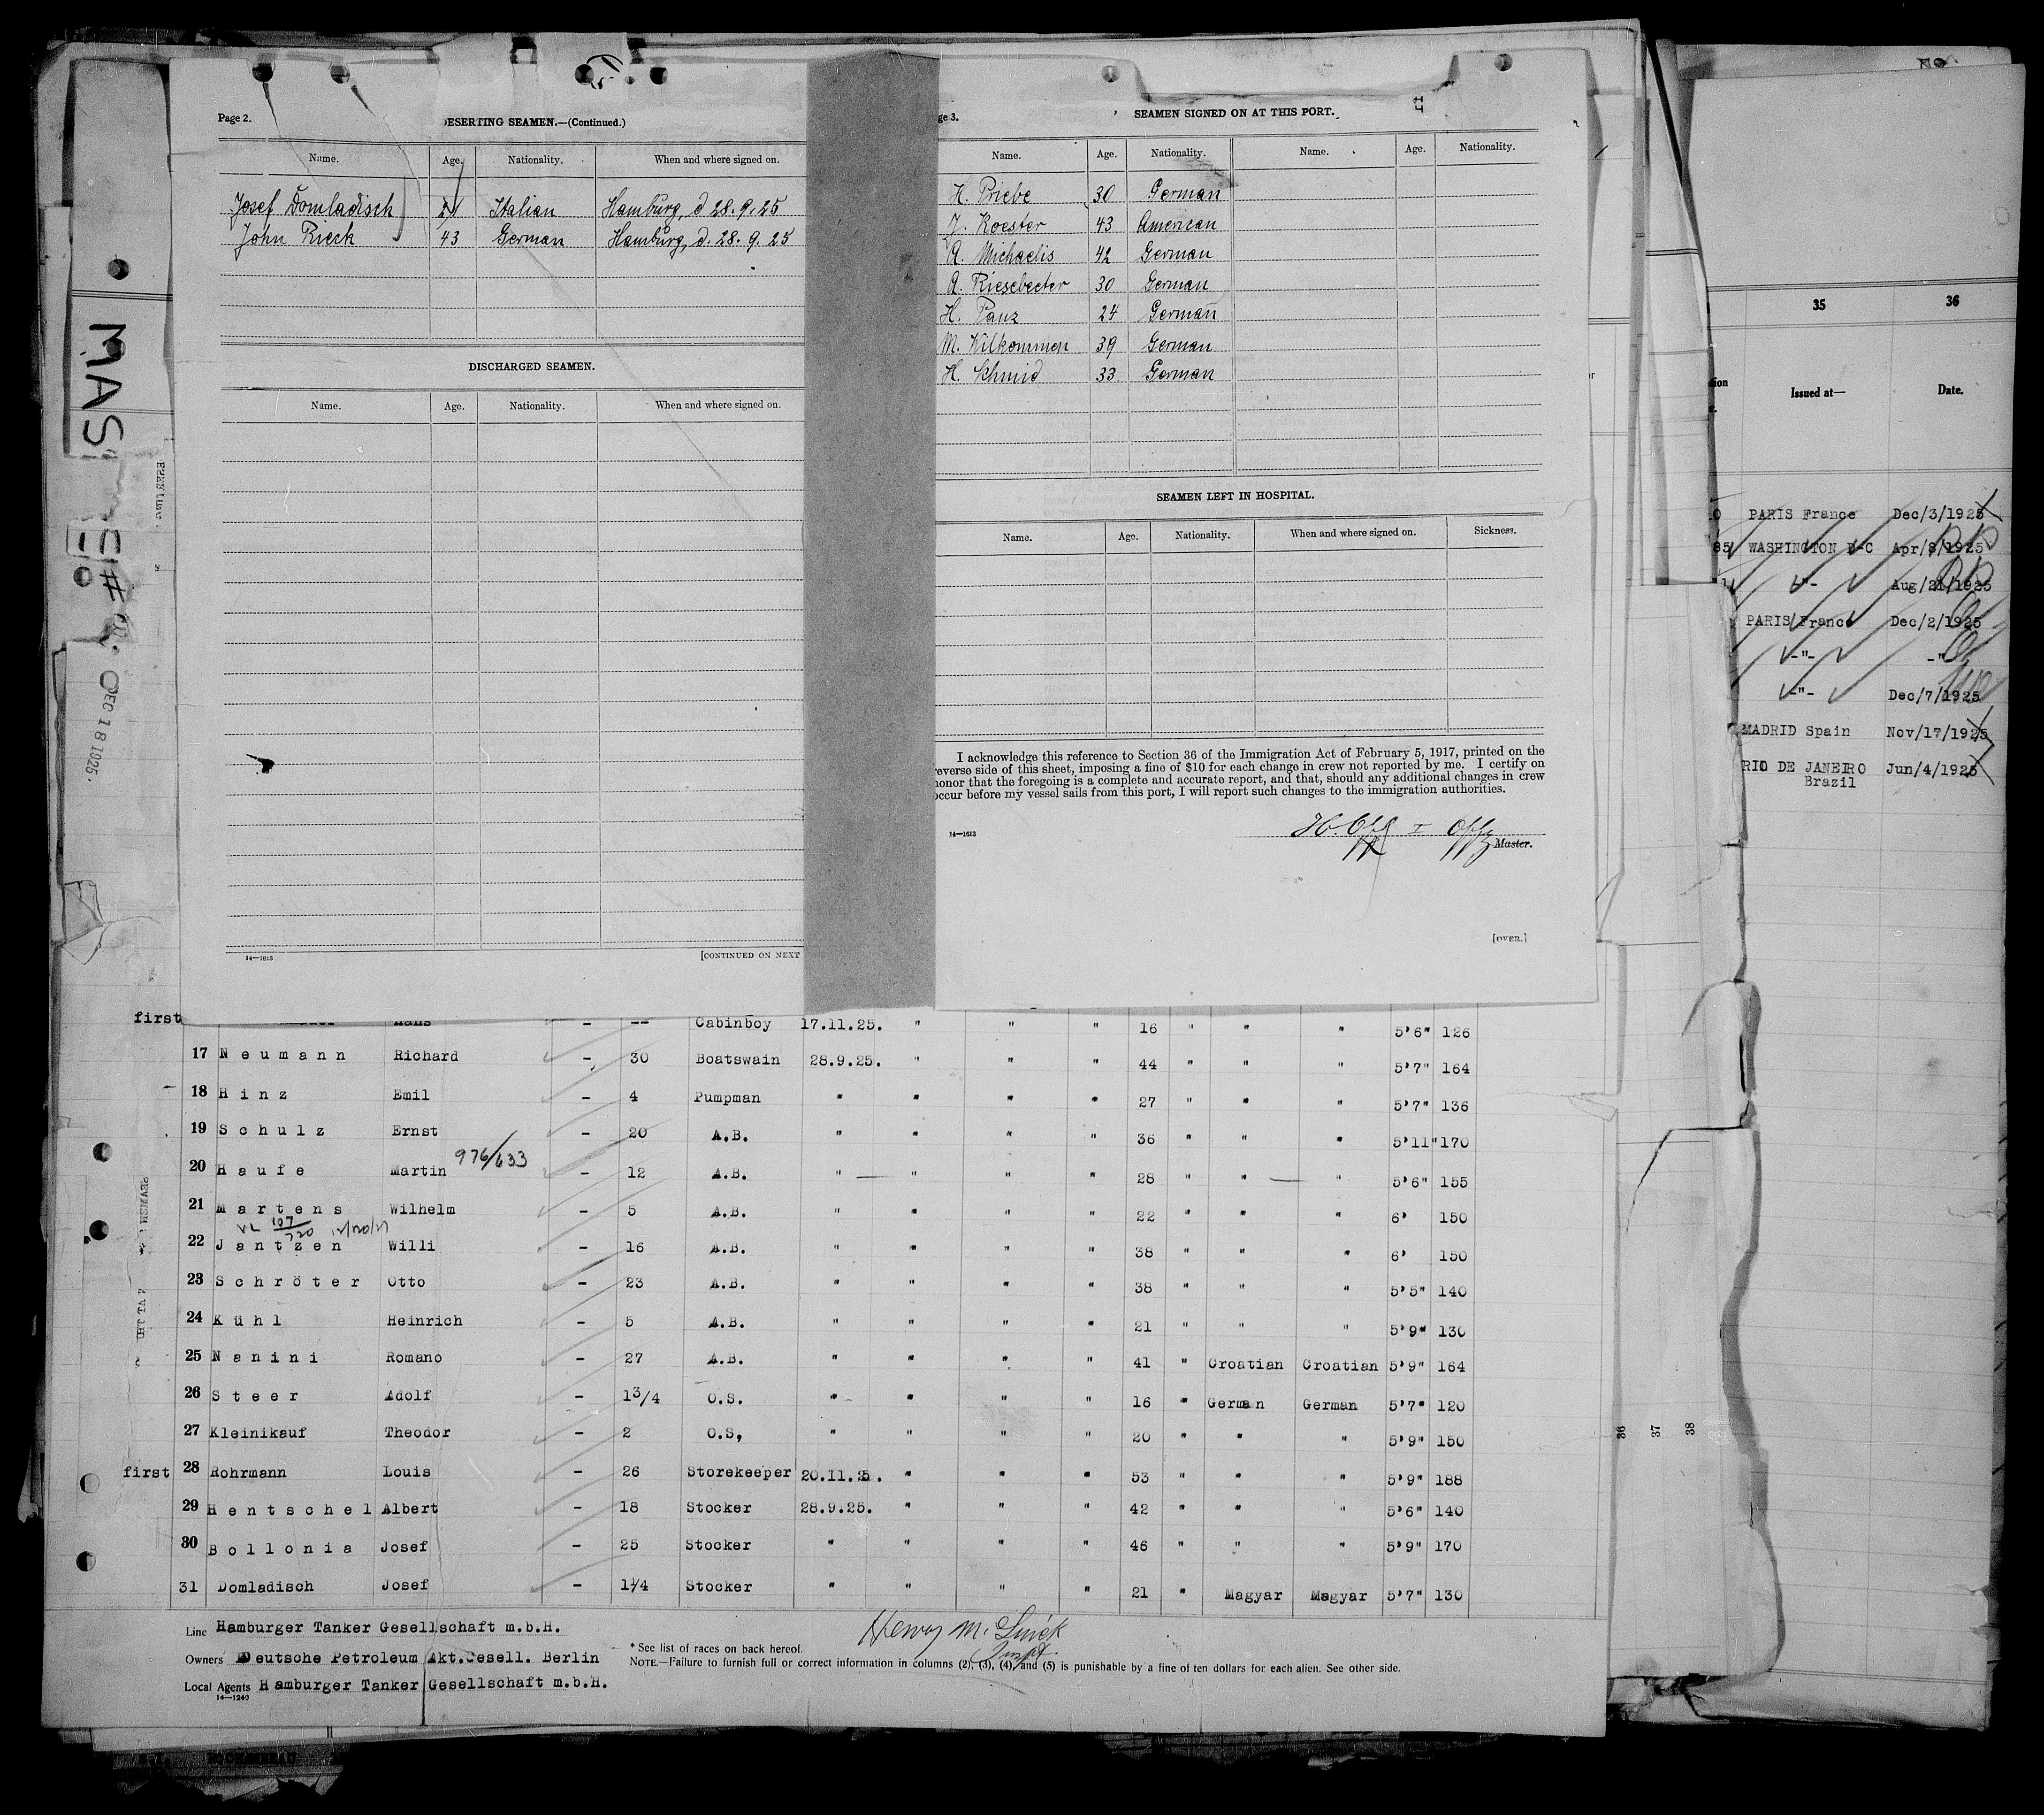 Page 2.
DESERTING SEAMEN.—(Continued.)
Name. Age. Nationality. When and where signed on.
Josef Domladisch 21 Italian Hamburg, d 28.9.25
John Rieck 43 German Hamburg, d. 28.9.25
DISCHARGED SEAMEN.
Name. Age. Nationality. When and where signed on.
14—1613
[CONTINUED ON NEXT
ge 3.
SEAMEN SIGNED ON AT THIS PORT.
Name. Age. Nationality. Name. Age. Nationality.
H. Priebe 30 German
J. Koester 43 American
A. Michaelis 42 German
A. Riesebecter 30 German
H. Panz 24 German
M. Wilkommen 39 German
H. Schmid 33 German
SEAMEN LEFT IN HOSPITAL.
Name. Age. Nationality. When and where signed on. Sickness.
I acknowledge this reference to Section 36 of the Immigration Act of February 5, 1917, printed on the
reverse side of this sheet, imposing a fine of $10 for each change in crew not reported by me. I certify on
honor that the foregoing is a complete and accurate report, and that, should any additional changes in crew
occur before my vessel sails from this port, I will report such changes to the immigration authorities.
14—1613
Master.
[OVER.]
MAS
DEC 18 1925.
35 36
Issued at— Date.
PARIS France Dec/3/1925
85 WASHINGTON D-C Apr/8/1925
-"- Aug/21/1925
PARIS France Dec/2/1925
-"- -"
-"- Dec/7/1925
MADRID Spain Nov/17/1925
RIO DE JANEIRO Jun/4/1925
Brazil
first Hans - -- Cabinboy 17.11.25. " " " 16 " " " 5'6" 126
17 Neumann Richard - 30 Boatswain 28.9.25. " " " 44 " " " 5'7" 164
18 Hinz Emil - 4 Pumpman " " " " 27 " " " 5'7" 136
19 Schulz Ernst - 20 A.B. " " " " 36 " " " 5'11" 170
976/633
20 Haufe Martin - 12 A.B. " " " " 28 " " " 5'6" 155
21 Martens Wilhelm - 5 A.B. " " " " 22 " " " 6' 150
107/720
22 Jantzen Willi - 16 A.B. " " " " 38 " " " 6' 150
23 Schröter Otto - 23 A.B. " " " " 38 " " " 5'5" 140
24 Kühl Heinrich - 5 A.B. " " " " 21 " " " 5'9" 130
25 Nanini Romano - 27 A.B. " " " " 41 " Croatian Croatian 5'9" 164
26 Steer Adolf - 1 3/4 O.S. " " " " 16 " German German 5'7" 120
27 Kleinikauf Theodor - 2 O.S, " " " " 20 " " " 5'9" 150
first 28 Rohrmann Louis - 26 Storekeeper 20.11.25. " " " 53 " " " 5'9" 188
29 Hentschel Albert - 18 Stocker 28.9.25. " " " 42 " " " 5'6" 140
30 Bollonia Josef - 25 Stocker " " " " 46 " " " 5'9" 170
31 Domladisch Josef - 1 1/4 Stocker " " " " 21 " Magyar Magyar 5'7" 130
36 37 38
Line Hamburger Tanker Gesellschaft m.b.H.
Owners Deutsche Petroleum Akt.Gesell. Berlin
Local Agents Hamburger Tanker Gesellschaft m.b.H.
14—1240
* See list of races on back hereof.
NOTE.—Failure to furnish full or correct information in columns (2), (3), (4), and (5) is punishable by a fine of ten dollars for each alien. See other side.